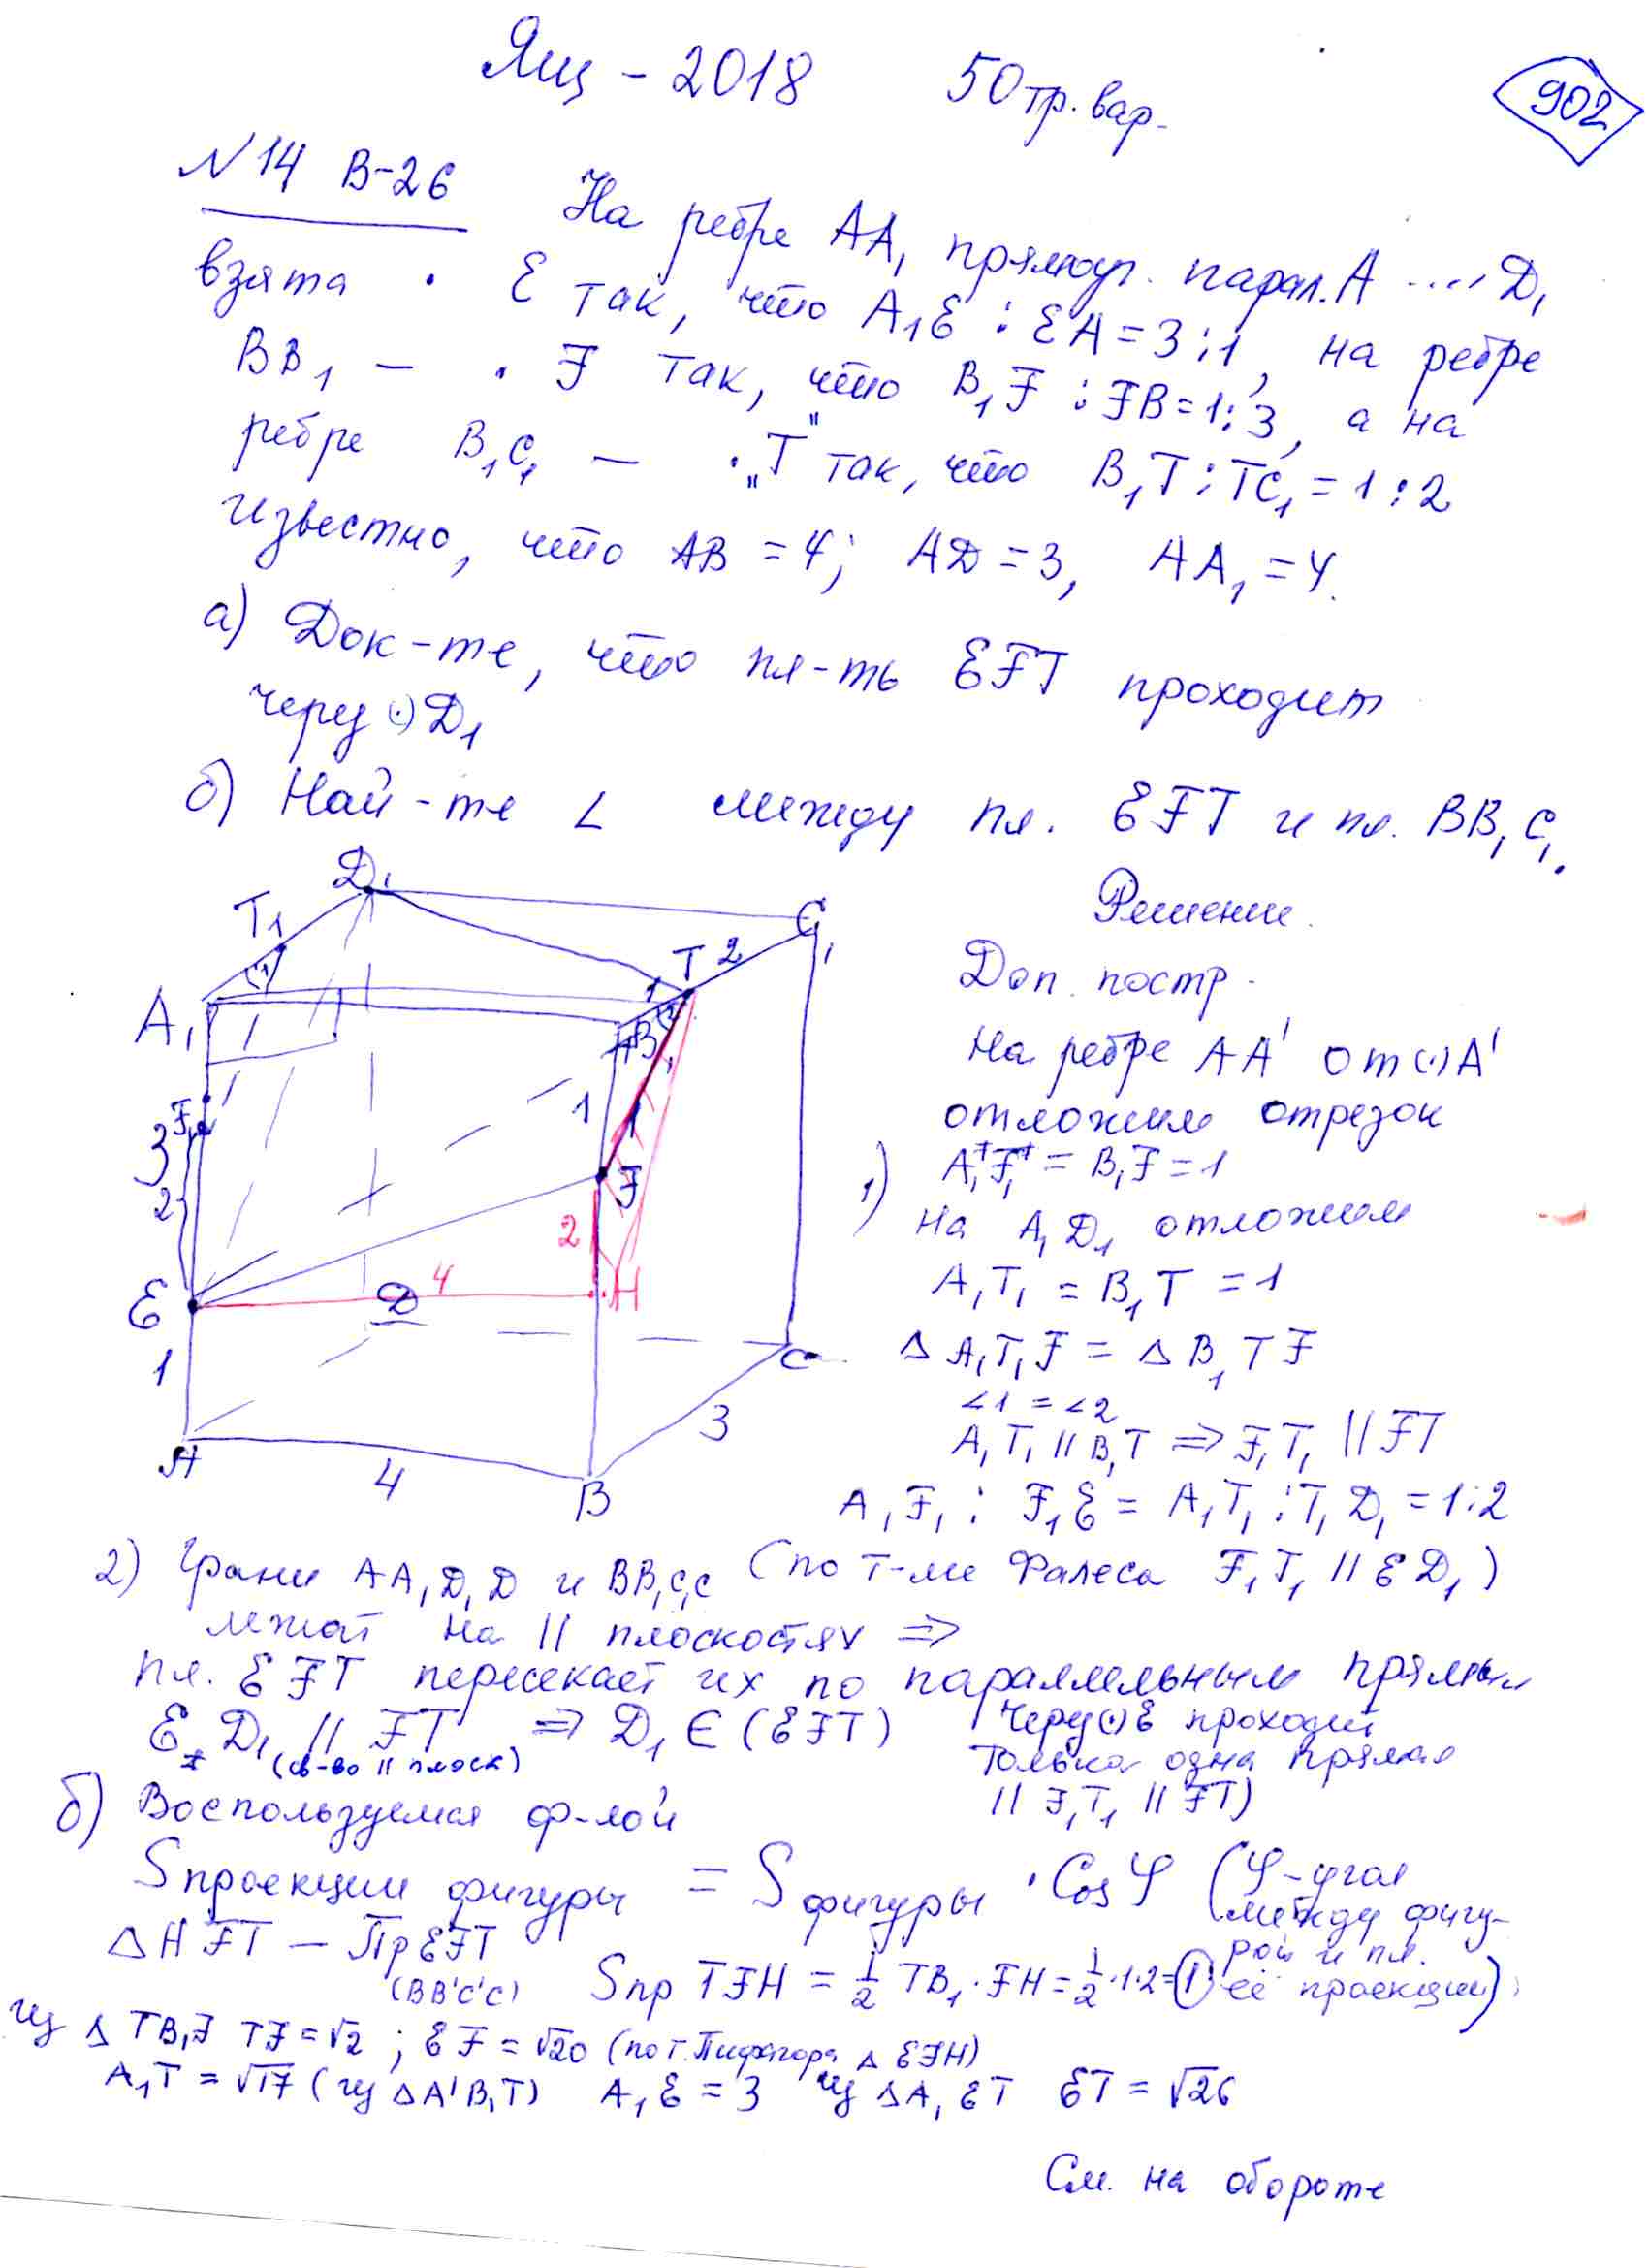 Ящ - 2018 50 тр. вар.
902
N 14 В-26 На ребре AA₁ прямоуг. парал. A .... D₁
взята · E так, что A₁E : EA = 3 : 1, на ребре
BB₁ — · F так, что B₁F : FB = 1 : 3, а на
ребре B₁C₁ — · „T" так, что B₁T : TC₁ = 1 : 2
известно, что AB = 4; AD = 3, AA₁ = 4.
а) Док-те, что пл-ть EFT проходит
через (·) D₁
б) Най-те ∠ между пл. EFT и пл. BB₁C₁.
D₁
T₁
C₁
T 2
1
A₁
B₁
1
F₁
3
1
F
2
2
E
4
D
H
1
C
3
A
4
B
Решение.
Доп. постр.
На ребре AA' от (·) A'
отложим отрезок
A₁F₁ = B₁F = 1
1) на A₁D₁ отложим
A₁T₁ = B₁T = 1
Δ A₁T₁F = Δ B₁TF
∠1 = ∠2
A₁T₁ || B₁T ⇒ F₁T₁ || FT
A₁F₁ : F₁E = A₁T₁ : T₁D₁ = 1:2
2) Грани AA₁D₁D и BB₁C₁C (по т-ме Фалеса F₁T₁ || ED₁)
лежат на || плоскостях ⇒
пл. EFT пересекает их по параллельным прямым
ED₁ || FT ⇒ D₁ ∈ (EFT)
(св-во || плоск)
через (·) E проходит
только одна прямая
|| F₁T₁ || FT)
б) Воспользуемся ф-лой
Sпроекции фигуры = Sфигуры · Cos φ (φ - угол
между фигу-
рой и пл.
её проекции)
Δ HFT — Пр EFT
(BB'C'C)
Sпр TFH = 1/2 TB₁ · FH = 1/2 · 1 · 2 = 1
из Δ TB₁F TF = √2 ; EF = √20 (по т. Пифагора Δ EFH)
A₁T = √17 (из Δ A'B₁T) A₁E = 3 из Δ A₁ET ET = √26
См. на обороте